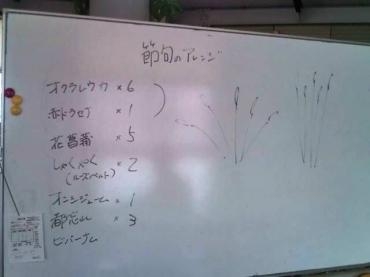 節句のアレンジ
オクラレウカ × 6
赤ドラセナ × 1
花菖蒲 × 5
しゃくやく × 2
(ルーズベルト)
オンシジューム × 1
都忘れ × 3
ビバーナム